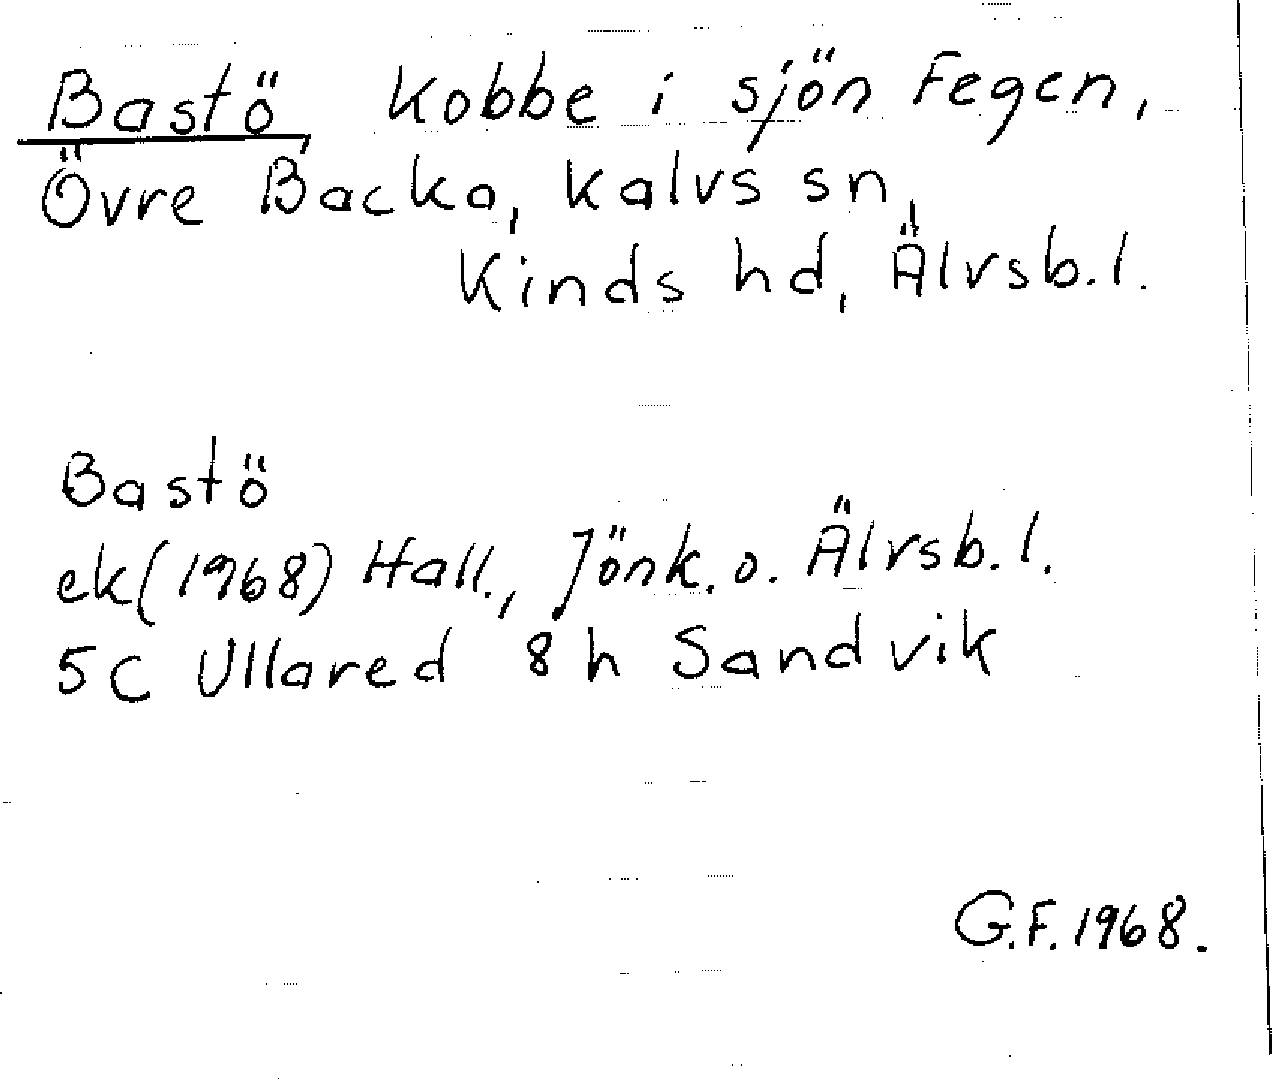 Bastö Kobbe i sjön Fegen,
Övre Backa, Kalvs sn,
Kinds hd, Älvsb.l.
Bastö
ek(1968) Hall., Jönk. o. Älvsb.l.
5C Ullared 8h Sandvik
G.F. 1968.